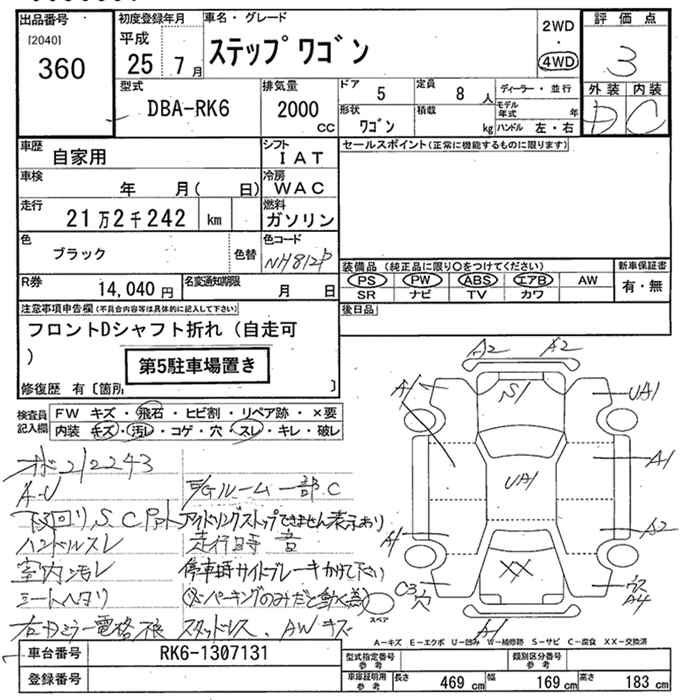 出品番号
[2040]
360
初度登録年月
平成
25 7月
車名・グレード
ステップワゴン
2WD
4WD
評価点
3
外装 内装
D C
型式
DBA-RK6
排気量
2000
CC
ドア 5
定員 8 人
ディーラー・並行
形状 ワゴン
積載 kg
モデル年式 年
ハンドル 左・右
車歴
自家用
シフト
IAT
セールスポイント(正常に機能するものに限ります)
車検
年 月( 日)
冷房
WAC
走行
21万2千242 km
燃料
ガソリン
色
ブラック
色替
色コード
NH812P
装備品 (純正品に限り○をつけてください)
新車保証書
PS PW ABS エアB AW
有・無
SR ナビ TV カワ
R券
14,040円
名変通知期限
月 日
後日品
注意事項申告欄(不具合内容等は具体的に記入して下さい)
フロントDシャフト折れ(自走可
)
第5駐車場置き
修復歴 有〔箇所 〕
検査員
記入欄
FW キズ・飛石・ヒビ割・リペア跡・×要
内装 キズ・汚レ・コゲ・穴・スレ・キレ・破レ
オド212243
A-U
下回リ,S,C
E/Gルーム一部C
アイドリングストップできません表示あり
ハンドルスレ
走行時 音
室内汚レ
停車時サイドブレーキかけて下い
シートヘタリ
(※パーキングのみだと動く為)
右ドミラー電格不良
スタットレス、AWキズ
A2 A2
A1
S1
UA1
A1
UA1
A1
A2
XX
C3
穴
A4
A1
スペア
A-キズ E-エクボ U-凹み W-補修跡 S-サビ C-腐食 XX-交換済
車台番号
RK6-1307131
登録番号
型式指定番号
参考
類別区分番号
参考
車庫証明用
参考
長さ 469 cm
幅 169 cm
高さ 183 cm